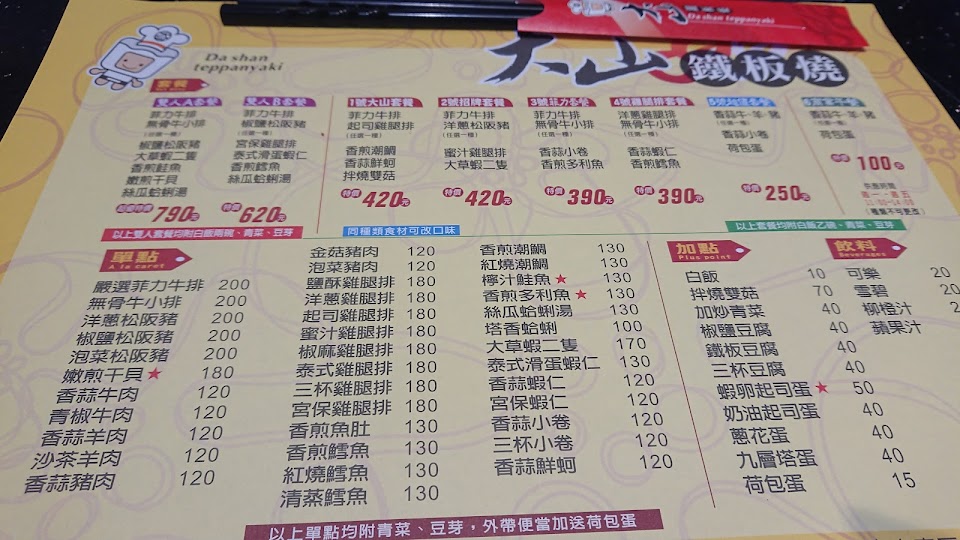 大山
Da shan teppanyaki
Da shan
teppanyaki
大山 鐵板燒
套餐
雙人A套餐
菲力牛排
無骨牛小排
(任選一種)
椒鹽松阪豬
大草蝦二隻
香煎鮭魚
嫩煎干貝
絲瓜蛤蜊湯
790元
雙人B套餐
菲力牛排
椒鹽松阪豬
(任選一種)
宮保雞腿排
泰式滑蛋蝦仁
香煎鱈魚
絲瓜蛤蜊湯
特價 620元
以上雙人套餐均附白飯兩碗、青菜、豆芽
1號大山套餐
菲力牛排
起司雞腿排
(任選一種)
香煎潮鯛
香蒜鮮蚵
拌燒雙菇
特價 420元
2號招牌套餐
菲力牛排
洋蔥松阪豬
(任選一種)
蜜汁雞腿排
大草蝦二隻
特價 420元
3號菲力套餐
菲力牛排
無骨牛小排
(任選一種)
香蒜小卷
香煎多利魚
特價 390元
4號雞腿排套餐
洋蔥雞腿排
無骨牛小排
(任選一種)
香蒜蝦仁
香煎鱈魚
特價 390元
香蒜牛.羊.豬
(任選一種)
香蒜小卷
荷包蛋
特價 250元
香蒜牛.羊.豬
(任選一種)
荷包蛋
100元
供應時間
週一~週五
11:00~14:00
同種類食材可改口味
以上套餐均附白飯乙碗、青菜、豆芽
單點
A la caret
嚴選菲力牛排 200
無骨牛小排 200
洋蔥松阪豬 200
椒鹽松阪豬 200
泡菜松阪豬 200
嫩煎干貝★ 180
香蒜牛肉 120
青椒牛肉 120
香蒜羊肉 120
沙茶羊肉 120
香蒜豬肉 120
金菇豬肉 120
泡菜豬肉 120
鹽酥雞腿排 180
洋蔥雞腿排 180
起司雞腿排 180
蜜汁雞腿排 180
椒麻雞腿排 180
泰式雞腿排 180
三杯雞腿排 180
宮保雞腿排 180
香煎魚肚 130
香煎鱈魚 130
紅燒鱈魚 130
清蒸鱈魚 130
香煎潮鯛 130
紅燒潮鯛 130
檸汁鮭魚★ 130
香煎多利魚★ 130
絲瓜蛤蜊湯 130
塔香蛤蜊 100
大草蝦二隻 170
泰式滑蛋蝦仁 130
香蒜蝦仁 120
宮保蝦仁 120
香蒜小卷 120
三杯小卷 120
香蒜鮮蚵 120
加點
Plus point
白飯 10
拌燒雙菇 70
加炒青菜 40
椒鹽豆腐 40
鐵板豆腐 40
三杯豆腐 40
蝦卵起司蛋★ 50
奶油起司蛋 40
蔥花蛋 40
九層塔蛋 40
荷包蛋 15
飲料
Beverages
可樂 20
雪碧 20
柳橙汁
蘋果汁
以上單點均附青菜、豆芽，外帶便當加送荷包蛋